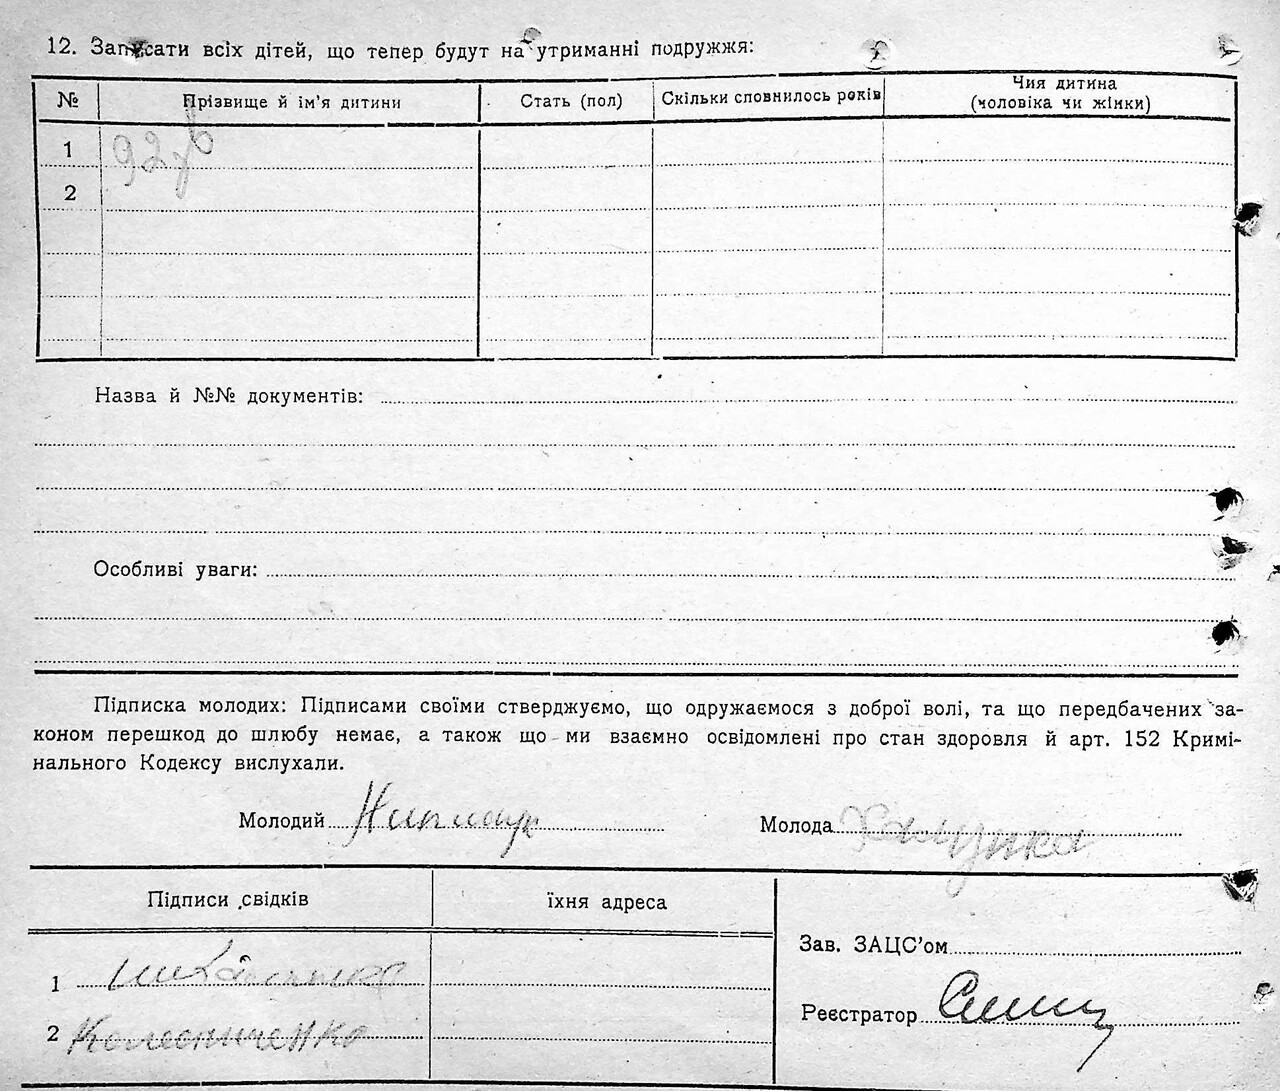 12. Записати всіх дітей, що тепер будут на утриманні подружжя:
№ Прізвище й ім'я дитини Стать (пол) Скільки сповнилось років Чия дитина (чоловіка чи жінки)
1
2
Назва й №№ документів:
Особливі уваги:
Підписка молодих: Підписами своїми стверджуємо, що одружаємося з доброї волі, та що передбачених за-
коном перешкод до шлюбу немає, а також що ми взаємно освідомлені про стан здоровля й арт. 152 Кримі-
нального Кодексу вислухали.
Молодий Молода
Підписи свідків їхня адреса
Зав. ЗАЦС'ом
1
Реєстратор
2 Колесниченко